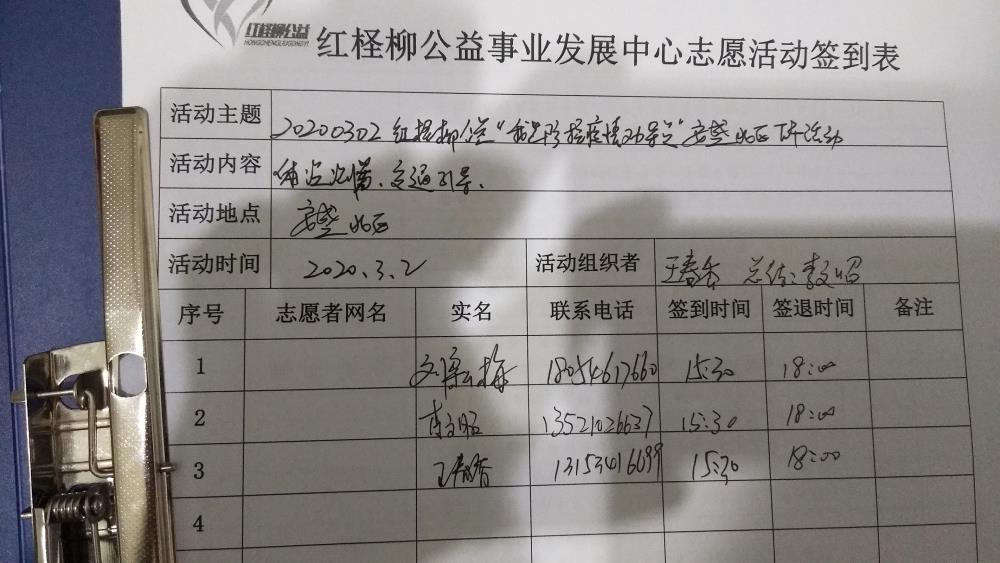 红柽柳公益
HONGCHENGLIUGONGYI
红柽柳公益事业发展中心志愿活动签到表
活动主题 20200302 红柽柳公益“ 防控疫情劝导员” 安盛北区 活动
活动内容 交通引导、
活动地点 安盛北区
活动时间 2020.3.2 活动组织者 王春香 总结:李文昭
序号 志愿者网名 实名 联系电话 签到时间 签退时间 备注
1 18054617660 15:30 18:00
2 李文昭 13521026637 15:30 18:00
3 王春香 13153416699 15:30 18:00
4